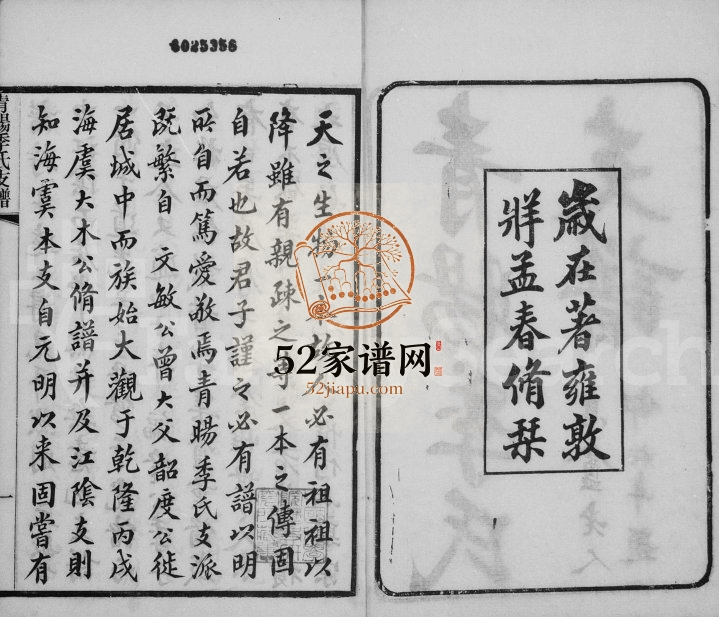 6025356
歲在著雍敦
牂孟春脩栞
天之生物一本故人必有祖祖以
降雖有親疎之一本之傳固
自若也故君子謹々必有譜以明
所自而篤愛敬焉青暘季氏支派
既繁自 文敏公曾大父韶度公徙
居城中而族始大觀于乾隆丙戌
海虞大木公脩譜并及江陰支則
知海虞本支自元明以来固嘗有
青暘季氏支譜
一
52家谱网
52jiapu.com